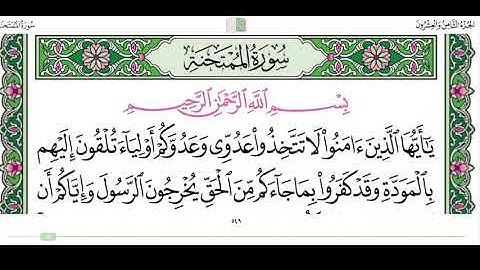 الجزء الثامن والعشرون
سورة الممتحنة
سُورَةُ المُمْتَحنَةِ
بِسْمِ اللَّهِ الرَّحْمَٰنِ الرَّحِيمِ
يَٰٓأَيُّهَا ٱلَّذِينَ ءَامَنُوا۟ لَا تَتَّخِذُوا۟ عَدُوِّى وَعَدُوَّكُمْ أَوْلِيَآءَ تُلْقُونَ إِلَيْهِم
بِٱلْمَوَدَّةِ وَقَدْ كَفَرُوا۟ بِمَا جَآءَكُم مِّنَ ٱلْحَقِّ يُخْرِجُونَ ٱلرَّسُولَ وَإِيَّاكُمْ أَن
٥٤٩